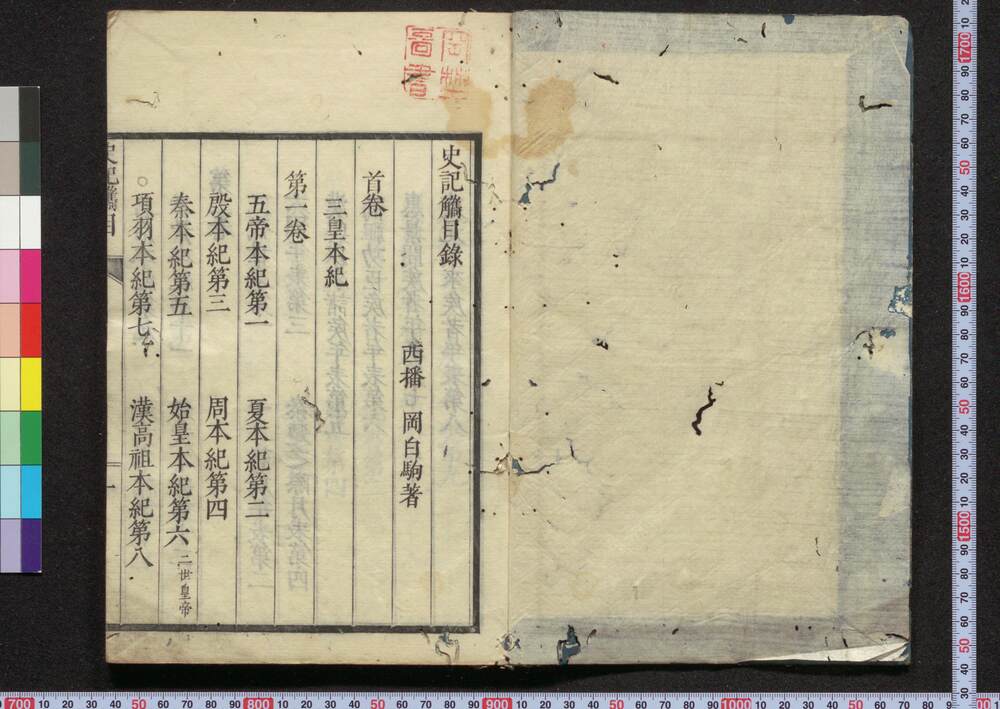 史記觿目錄
西播 岡白駒著
首卷
三皇本紀
第一卷
五帝本紀第一 夏本紀第二
殷本紀第三 周本紀第四
秦本紀第五 始皇本紀第六 二世皇帝
項羽本紀第七 漢高祖本紀第八
史記觿目
一
圖書